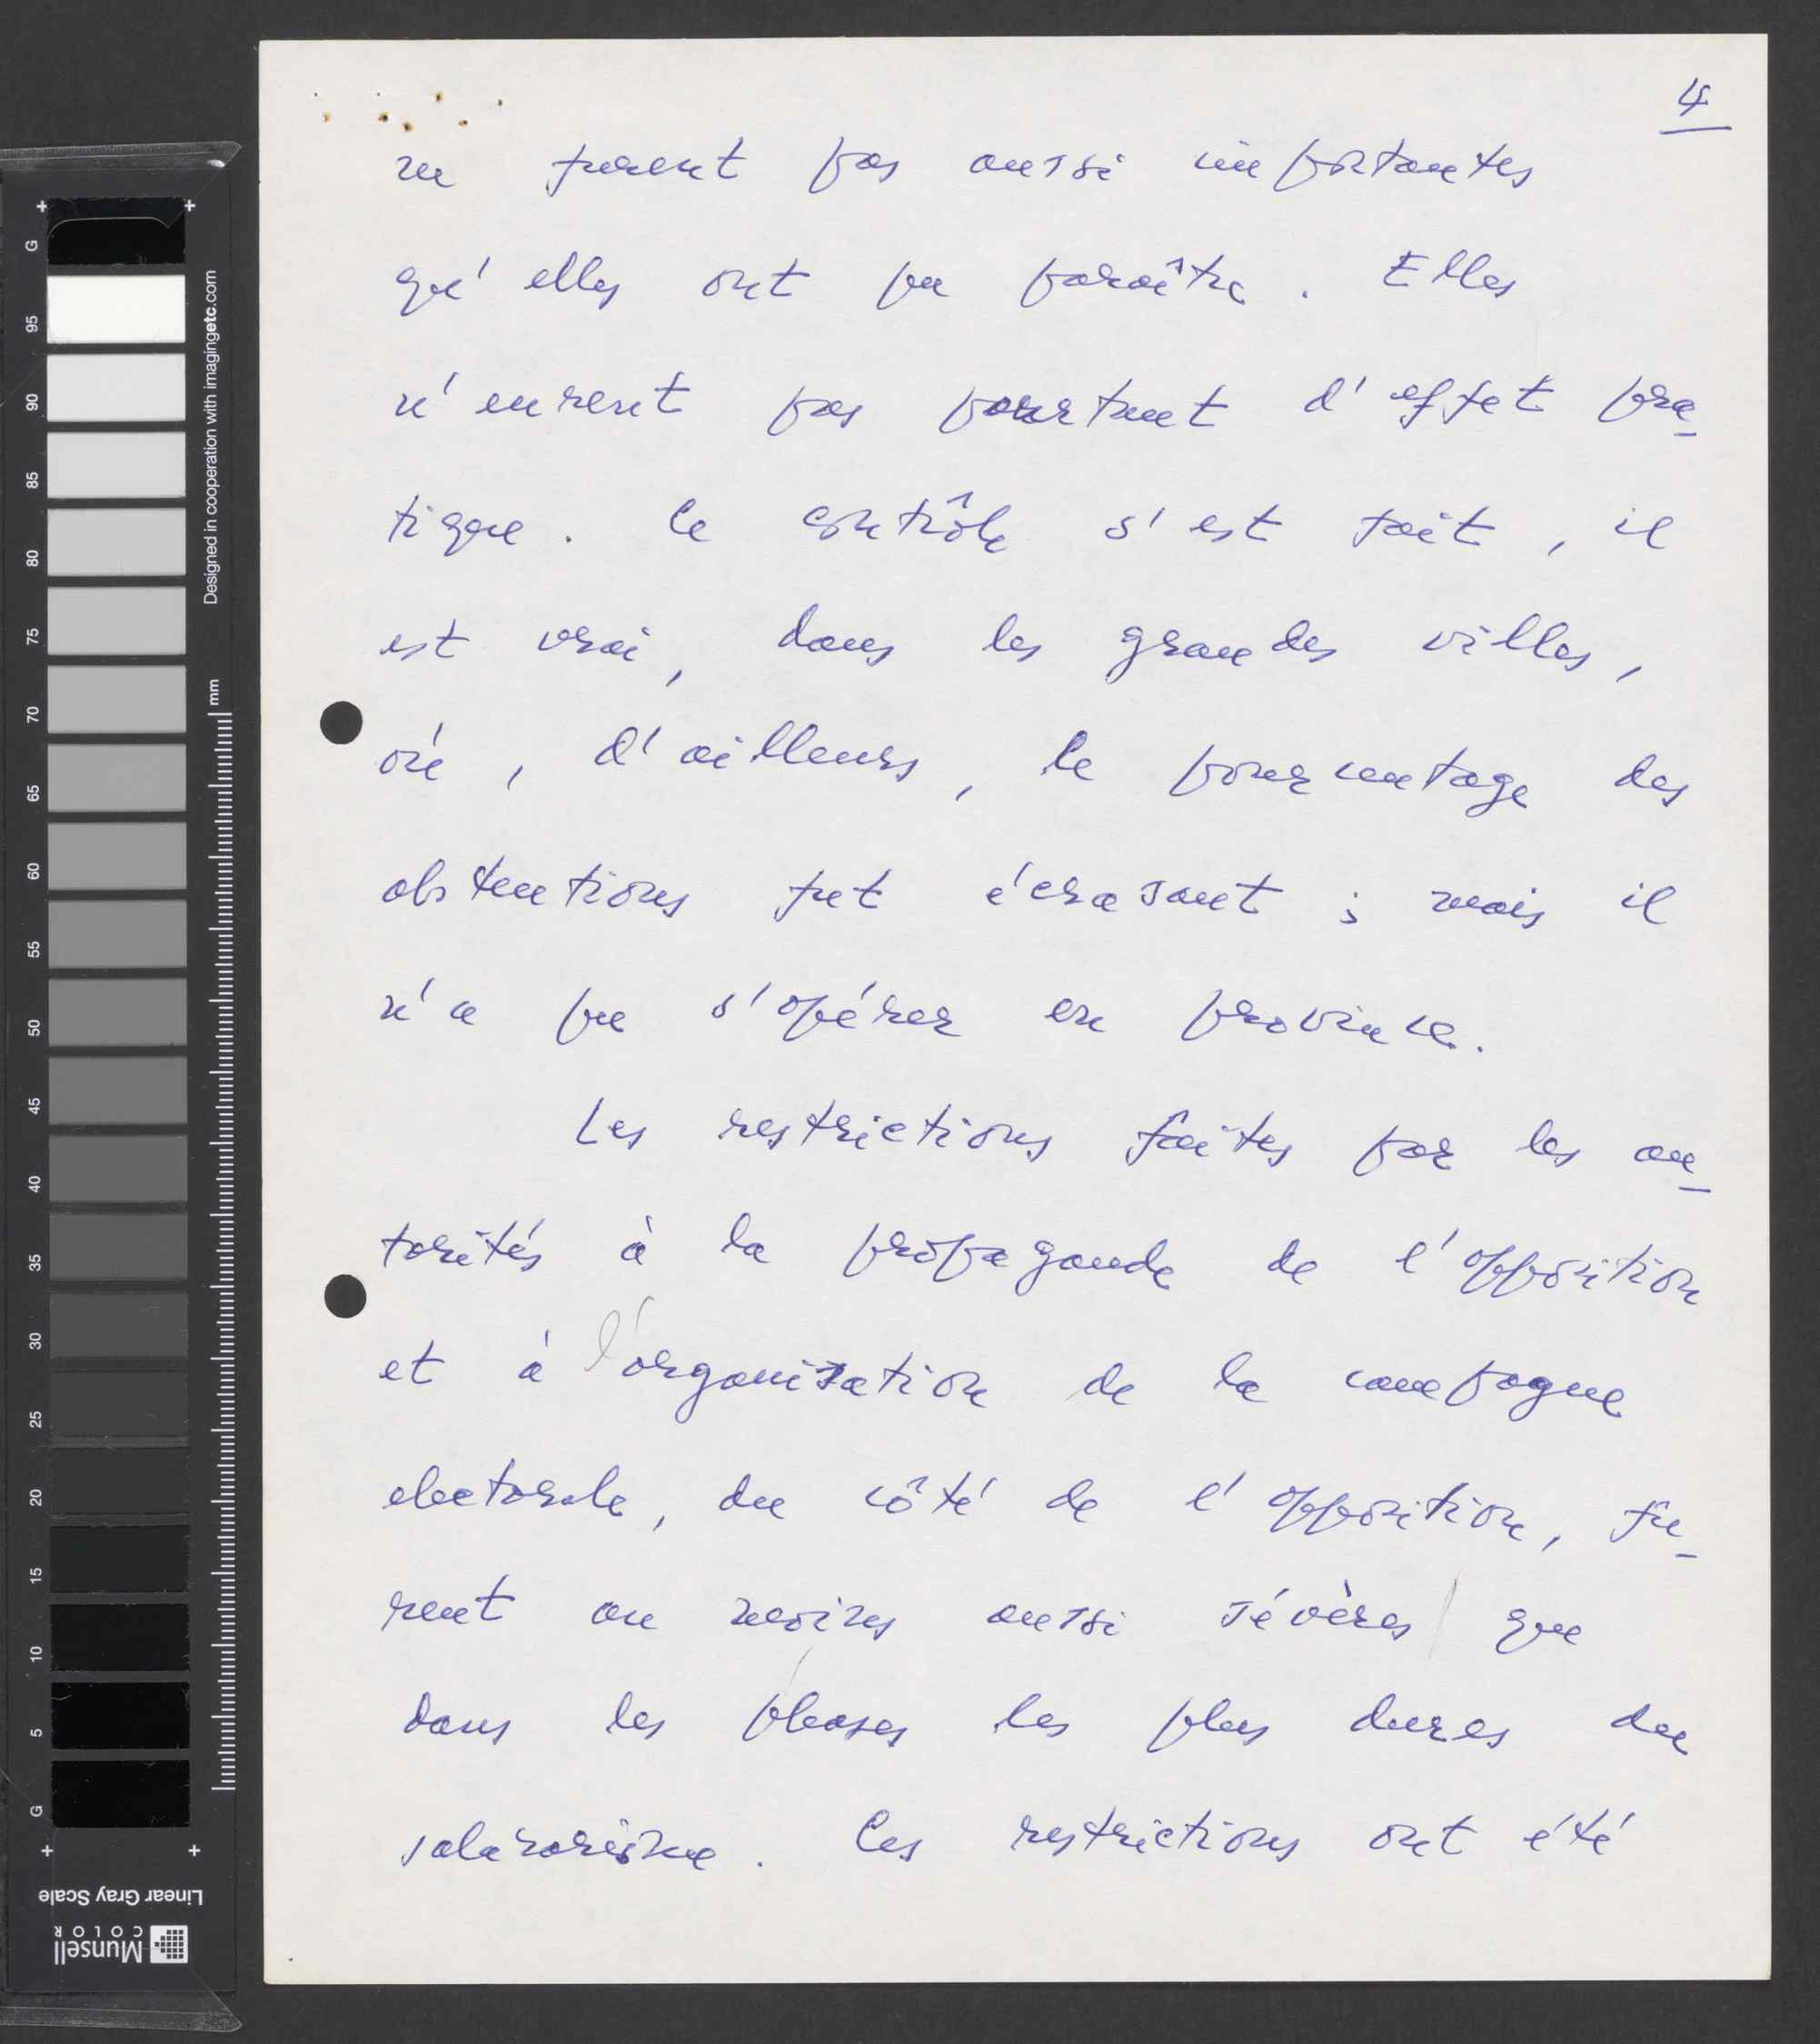 4
ne furent pas aussi importantes
qu'elles ont pu paraître. Elles
n'eurent pas pourtant d'effet pra-
tique. Le contrôle s'est fait, il
est vrai, dans les grandes villes,
où, d'ailleurs, le pourcentage des
abstentions fut écrasant ; mais il
n'a pu s'opérer en province.
Les restrictions faites par les au-
torités à la propagande de l'opposition
et à l'organisation de la campagne
electorale, du côté de l'opposition, fu-
rent au moins aussi sévères que
dans les phases les plus dures du
salazarisme. Ces restrictions ont été
G
95
90
85
80
75
70
65
60
55
50
45
40
35
30
25
20
15
10
5
G
mm
Designed in cooperation with imagingetc.com
Linear Gray Scale
Munsell
COLOR